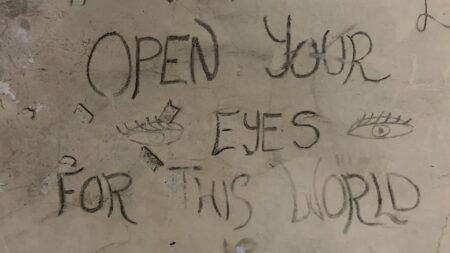 OPEN YOUR
EYES
FOR THIS WORLD